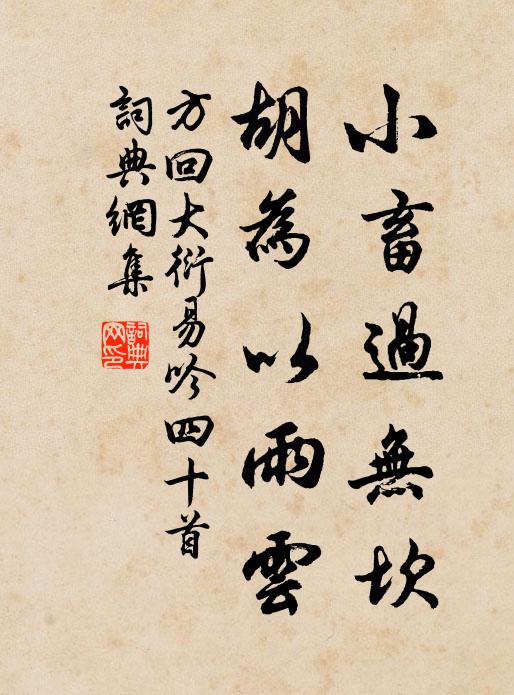 小畜過無坎
胡為以雨雲
方回大衍易吟四十首
詞典網集
詞典網印